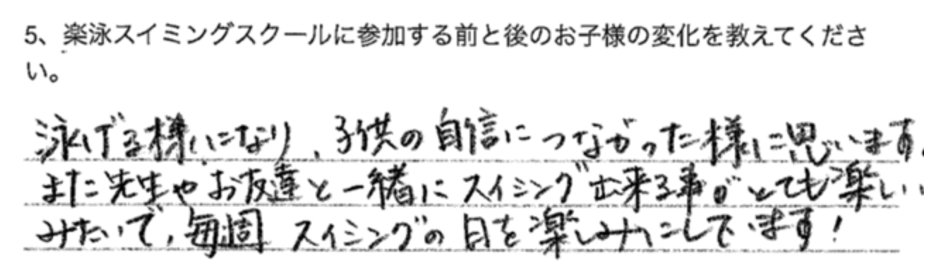 5、楽泳スイミングスクールに参加する前と後のお子様の変化を教えてくださ
い。
泳げる様になり、子供の自信につながった様に思います。
また先生やお友達と一緒にスイミング出来る事がとても楽しい
みたいで、毎週スイミングの日を楽しみにしています！